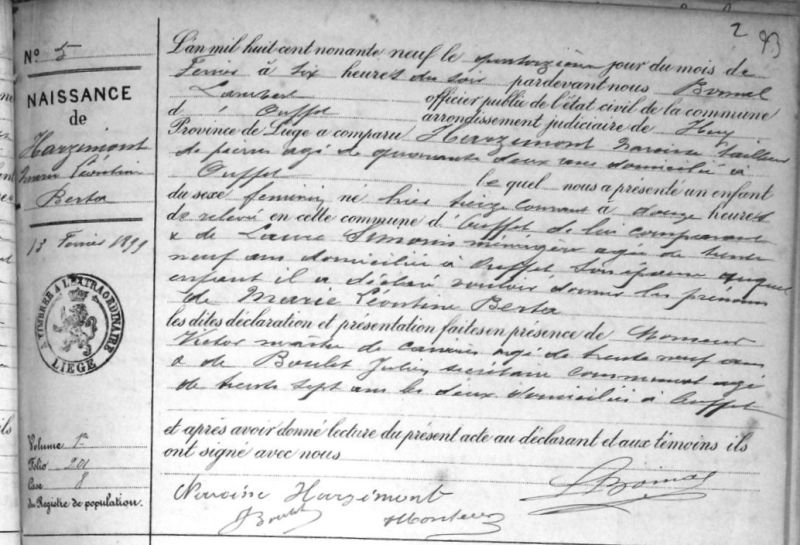 2 93
Nº 5
NAISSANCE
de
Harzimont
Marie Léontine
Berta
13 Fevrier 1899
A TIMBRER A L'EXTRAORDINAIRE
LIÉGE
Volume 1r
Folio 201
Case 8
du Registre de population.
L'an mil huit cent nonante neuf le quatorzième jour du mois de
Fevrier à six heures du soir pardevant nous Bomal
Lambert officier public de l'état civil de la commune
d' Ouffet arrondissement judiciaire de Huy
Province de Liége a comparu Harzimont Narcisse tailleur
de pierres agé de quarante deux ans domicilié à
Ouffet lequel nous a présenté un enfant
du sexe feminin né hier treize courant à douze heures
de relevé en cette commune d'Ouffet de lui comparant
& de Laure Simonis ménagère agée de trente
neuf ans domiciliée à Ouffet son épouse auquel
enfant il a déclaré vouloir donner les prénoms
de Marie Léontine Berta
les dites déclaration et présentation faites en présence de Monseur
Victor maître de carrières agé de trente neuf ans
& de Boulet Julien secrétaire communal agé
de trente sept ans les deux domiciliés à Ouffet
et après avoir donné lecture du présent acte au déclarant et aux témoins ils
ont signé avec nous
Narcisse Harzimont
LBomal
JBoulet Monseur